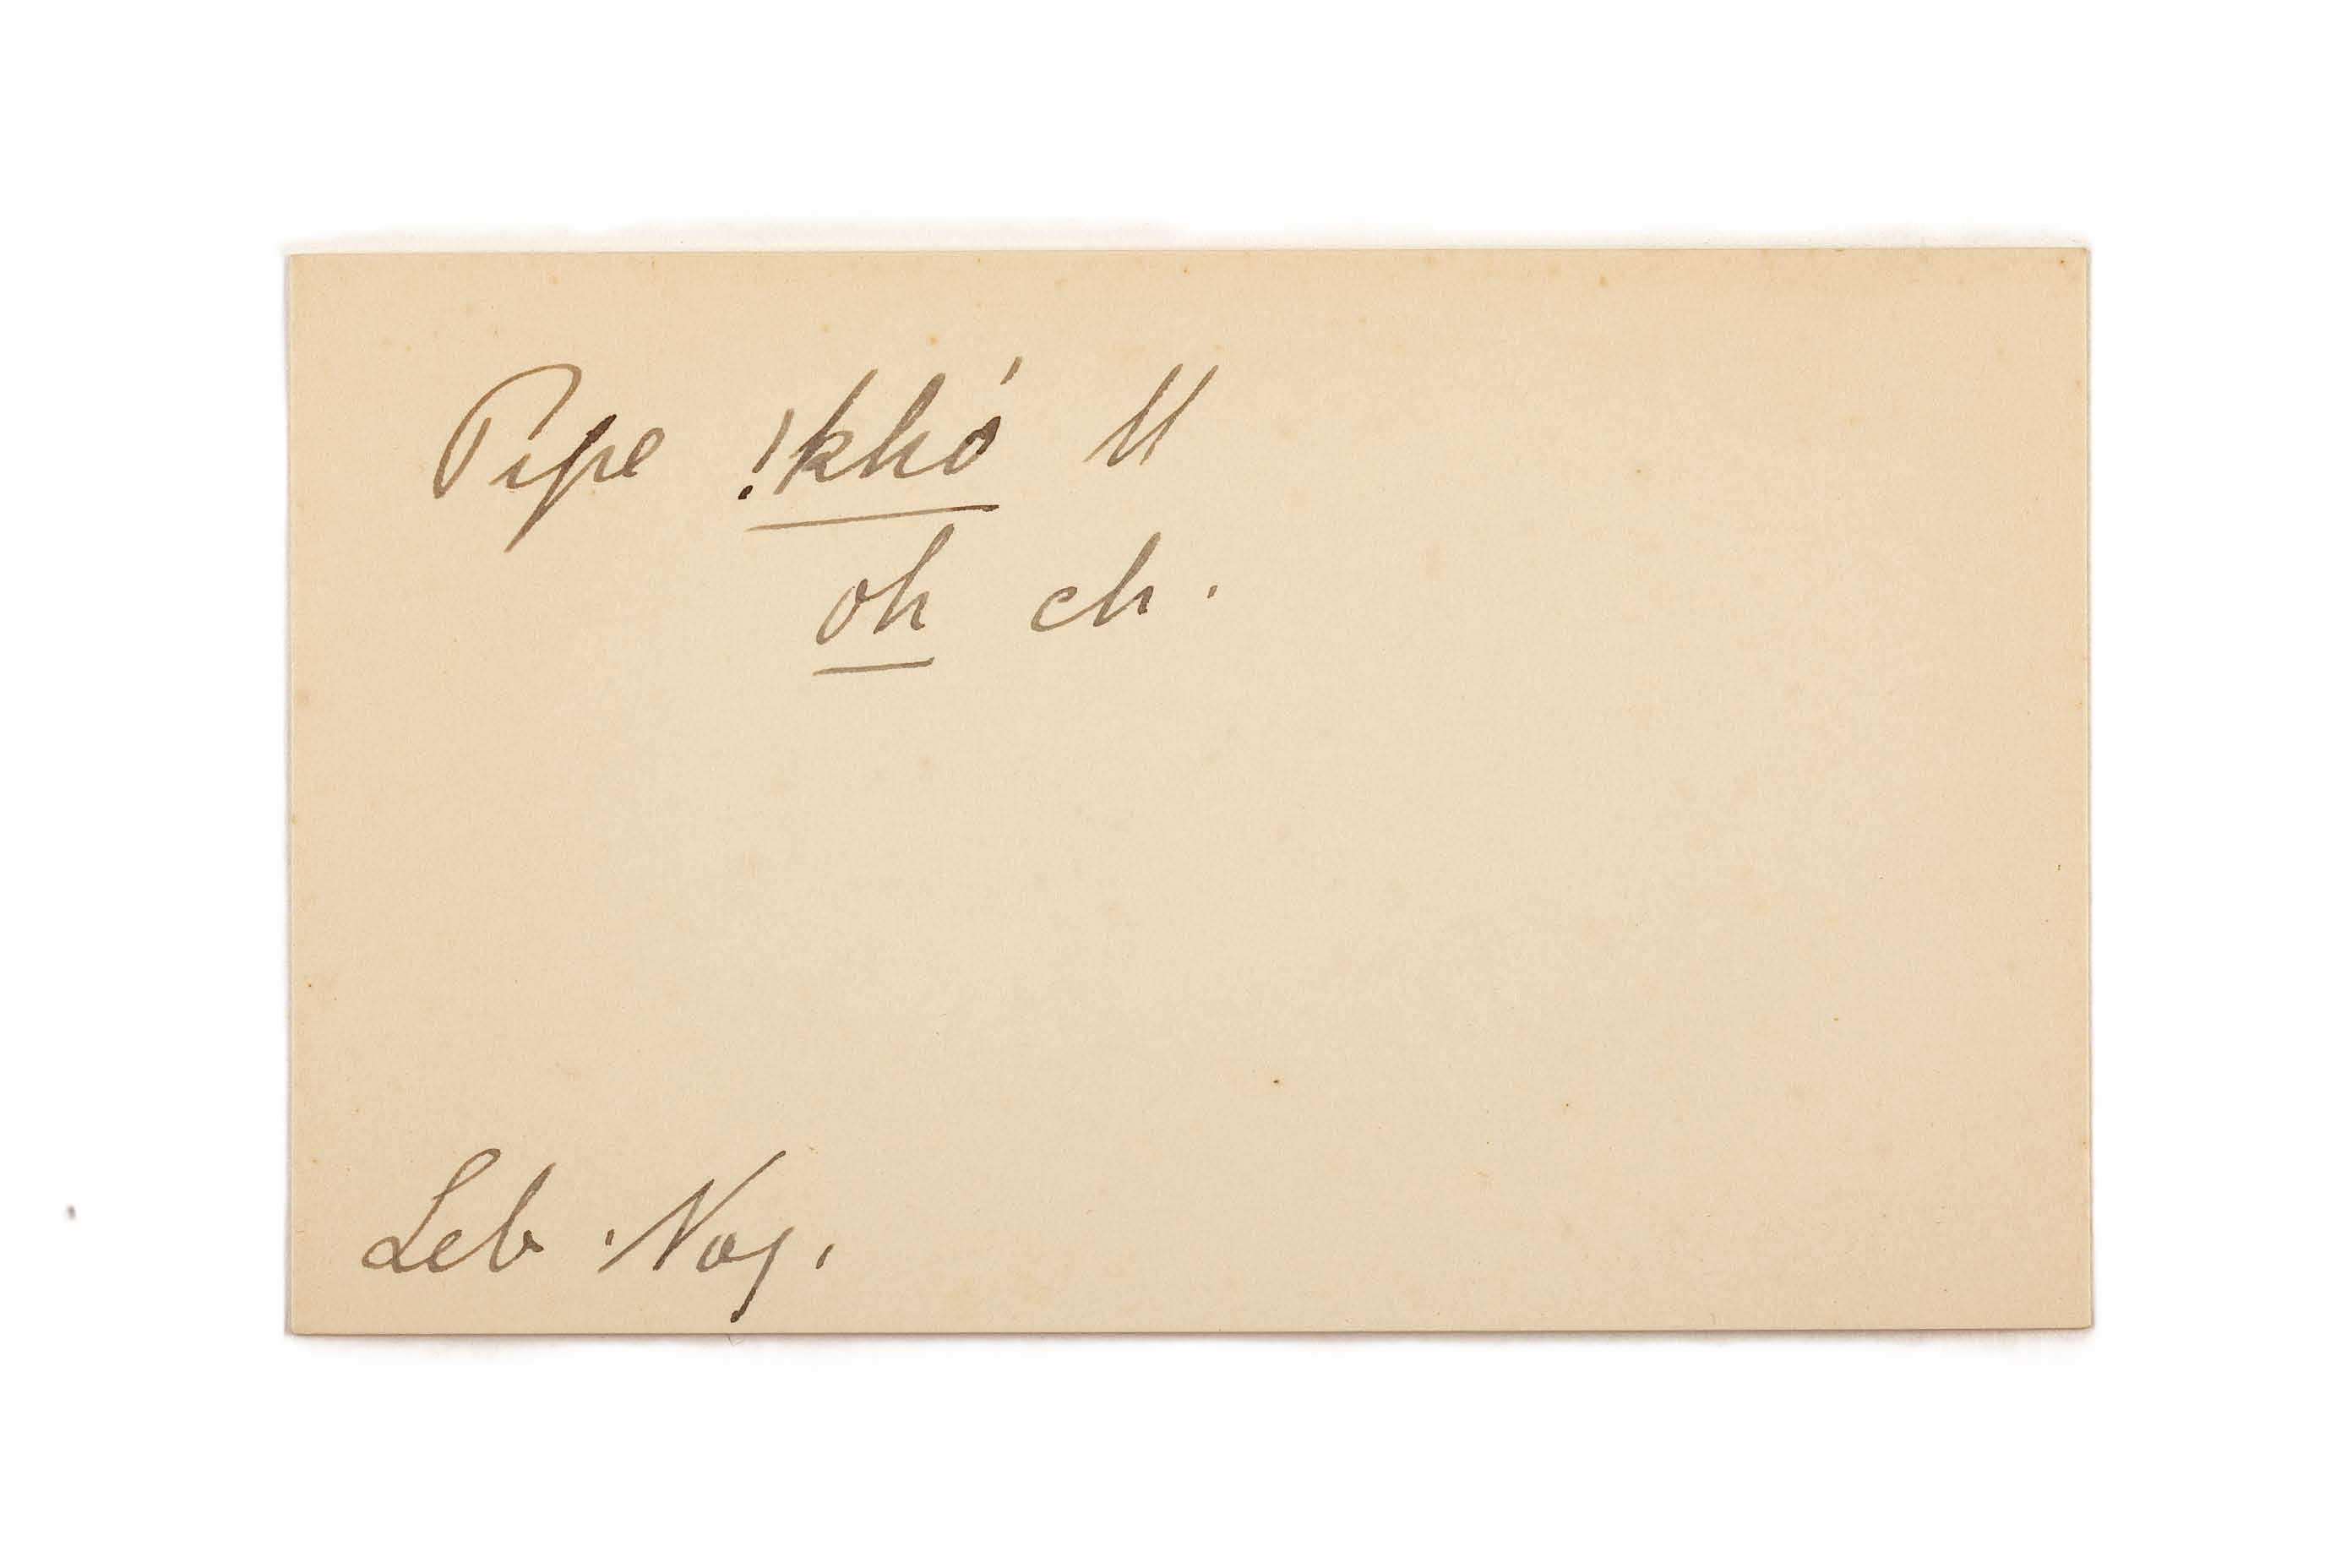 Pipe !khó 11
oh ch.
Leb. Nog.